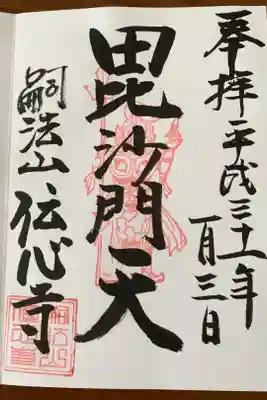 奉拝 平成三十一年
一月三日
毘沙門天
嗣法山 伝心寺